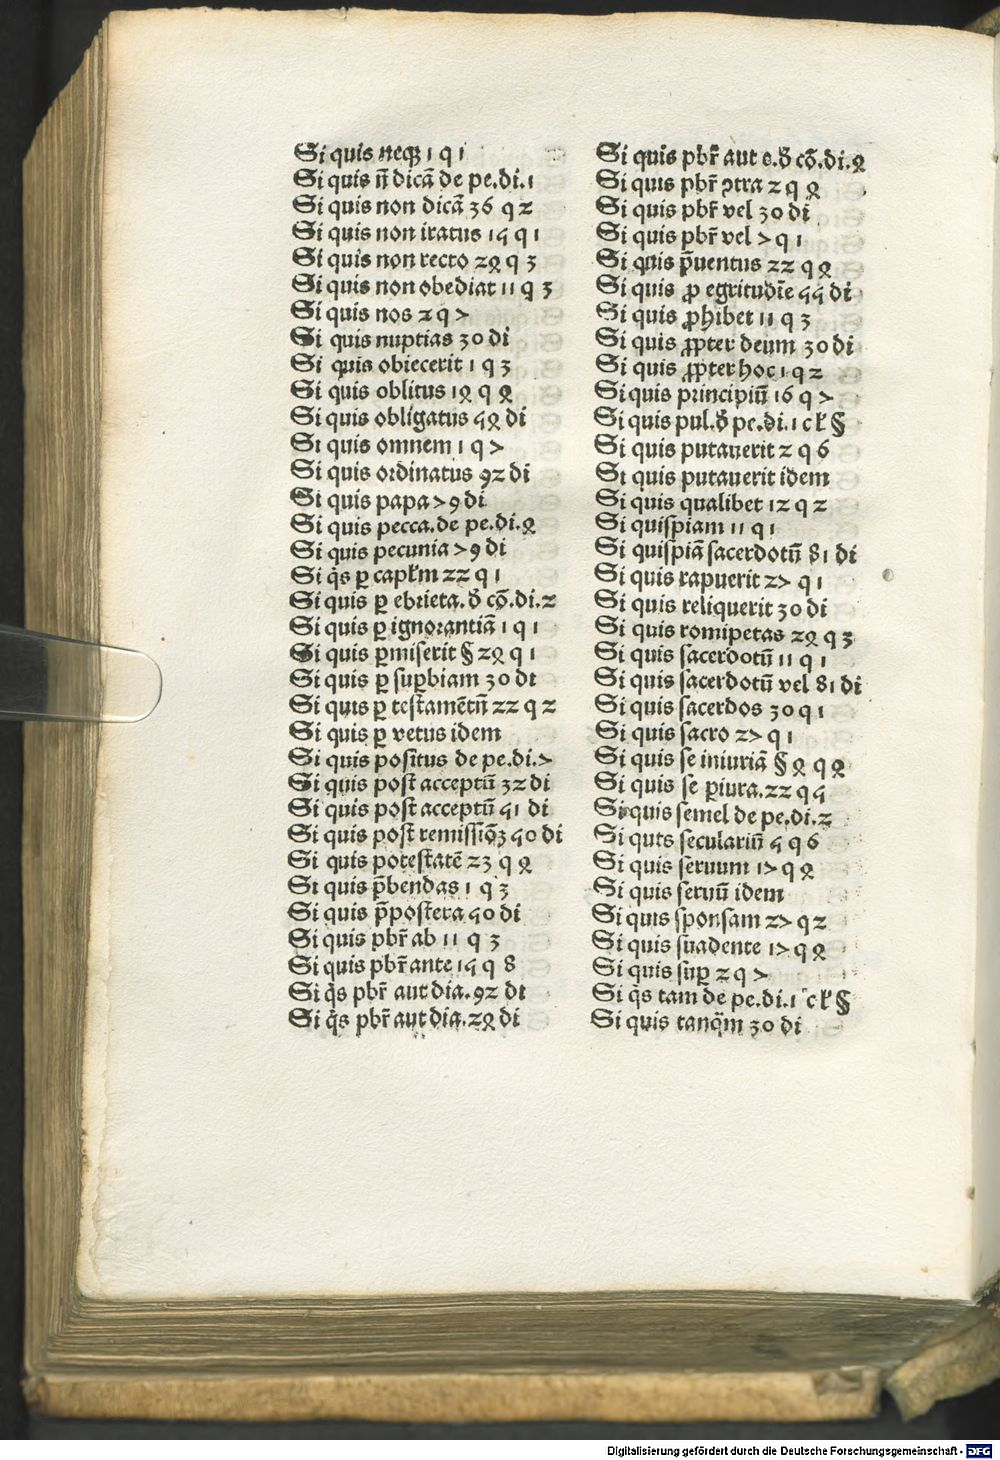 Si quis neqꝫ 1 q 1
Si quis n̄ dicā de pe.di.1
Si quis non dicā 36 q 2
Si quis non iratus 15 q 1
Si quis non recto 24 q 3
Si quis non obediat 11 q 3
Si quis nos 2 q 7
Si quis nuptias 30 di
Si quis obiecerit 1 q 3
Si quis oblitus 14 q 4
Si quis obligatus 54 di
Si quis omnem 1 q 7
Si quis ordinatus 92 di
Si quis papa 79 di
Si quis pecca.de pe.di.4
Si quis pecunia 79 di
Si q̇s ꝑ capl̄m 22 q 1
Si quis ꝑ ebrieta.ð cō.di.2
Si quis ꝑ ignorantiā 1 q 1
Si quis ꝑmiserit § 24 q 1
Si quis ꝑ suꝑbiam 30 di
Si quis ꝑ testamētū 22 q 2
Si quis ꝑ vetus idem
Si quis positus de pe.di.7
Si quis post acceptū 32 di
Si quis post acceptū 51 di
Si quis post remissiōꝫ 50 di
Si quis potestatē 23 q 4
Si quis p̄bendas 1 q 3
Si quis p̄postera 50 di
Si quis pbr̄ ab 11 q 3
Si quis pbr̄ ante 15 q 8
Si q̇s pbr̄ aut dia.92 di
Si q̇s pbr̄ aut dia.24 di
Si quis pbr̄ aut e.ð cō.di.4
Si quis pbr̄ ꝯtra 2 q 4
Si quis pbr̄ vel 30 di
Si quis pbr̄ vel 7 q 1
Si quis p̄uentus 22 q 4
Si quis ꝓ egritudīe 55 di
Si quis ꝓhibet 11 q 3
Si quis ꝓpter deum 30 di
Si quis ꝓpter hoc 1 q 2
Si quis principiū 16 q 7
Si quis pul.ð pe.di.1 c ꝉ §
Si quis putauerit 2 q 6
Si quis putauerit idem
Si quis qualibet 12 q 2
Si quispiam 11 q 1
Si quispiā sacerdotū 81 di
Si quis rapuerit 27 q 1
Si quis reliquerit 30 di
Si quis romipetas 24 q 3
Si quis sacerdotū 11 q 1
Si quis sacerdotū vel 81 di
Si quis sacerdos 30 q 1
Si quis sacro 27 q 1
Si quis se iniuriā § 4 q 4
Si quis se ꝑiura.22 q 5
Si quis semel de pe.di.2
Si quis seculariū 5 q 6
Si quis seruum 17 q 4
Si quis seruū idem
Si quis sponsam 27 q 2
Si quis suadente 17 q 4
Si quis suꝑ 2 q 7
Si q̇s tam de pe.di.1 c ꝉ §
Si quis tanq̄m 30 di
Digitalisierung gefördert durch die Deutsche Forschungsgemeinschaft - DFG